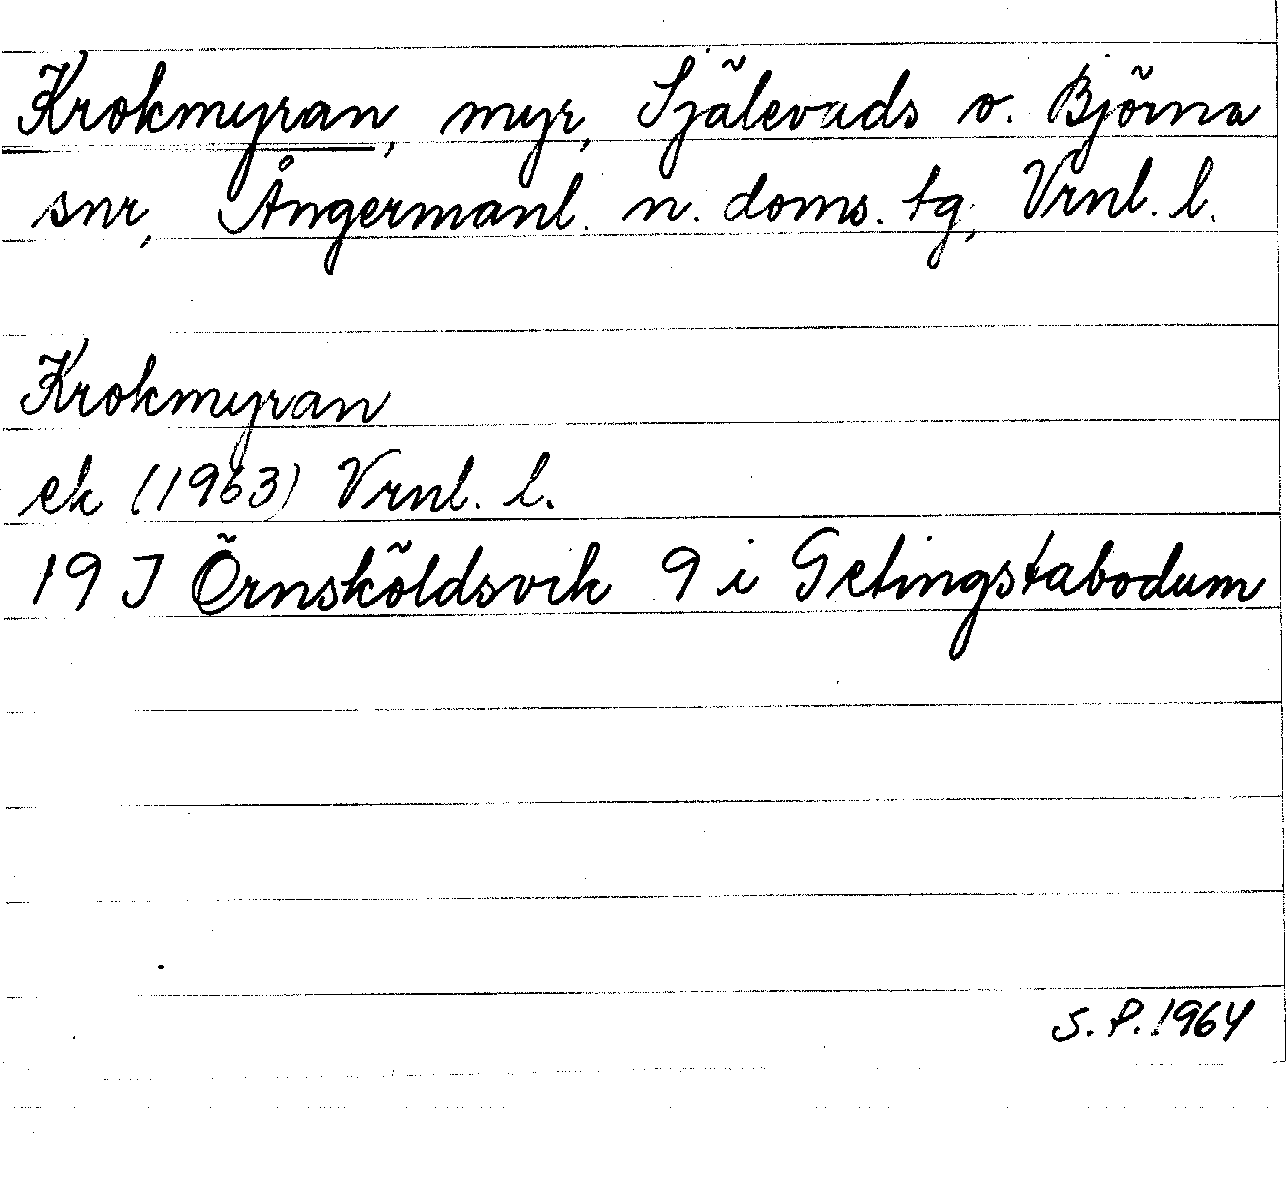 Krokmyran, myr, Själevads o. Björna
snr, Ångermanl. n. doms. tg, Vrnl. l.
Krokmyran
ek (1963) Vrnl. l.
19 J Örnsköldsvik 9 i Getingstabodum
S. P. 1964